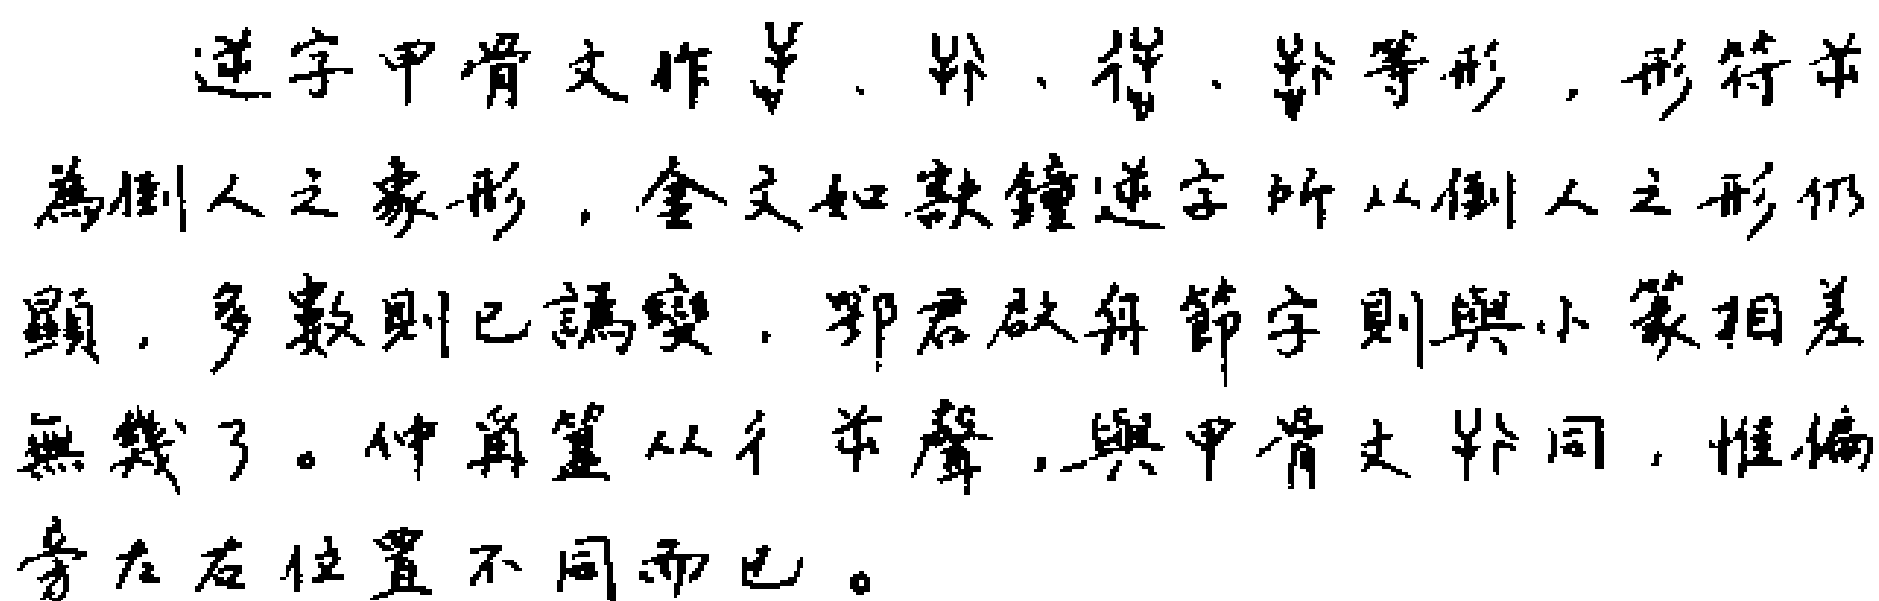 逆字甲骨文作、、、等形，形符屰
為倒人之象形，金文如㝬鐘逆字所从倒人之形仍
顯，多數則已譌變．鄂君啟舟節字則與小篆相差
無幾了。仲爯簋从彳屰聲，與甲骨文同，惟偏
旁左右位置不同而已。